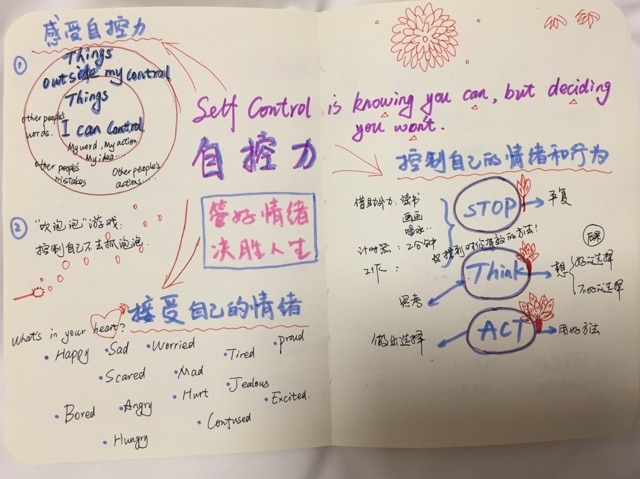 感受自控力
①
Things
outside my control
Things
I can Control
My word, My action
My idea...
other people's
words.
other people's
mistakes
Other people's
actions.
②
"吹泡泡"游戏.
控制自己不去抓泡泡.
Self Control is knowing you can, but deciding
you won't.
自控力
管好情绪
决胜人生
接受自己的情绪
What's in your heart?
Happy
Sad
Worried
Tired
proud
Scared
Mad
Jealous
Hurt
Excited.
Bored
Angry
Confused
Hungry
控制自己的情绪和行为
STOP
平复
借助外力: 读书
画画
喝水...
计时器: 2分钟
找到对你有效的方法!
Think
思考
想
后果
好的选择
不好的选择
ACT
做出选择
用好方法